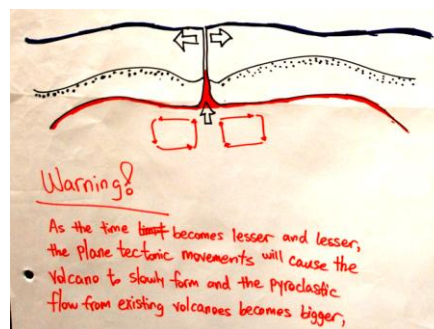 Warning!
As the time limit becomes lesser and lesser,
the plane tectonic movements will cause the
volcano to slowly form and the pyroclastic
flow from existing volcanoes becomes bigger,